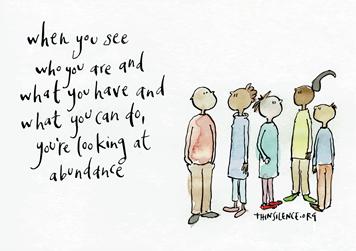 when you see
who you are and
what you have and
what you can do,
you're looking at
abundance
THINSILENCE.ORG